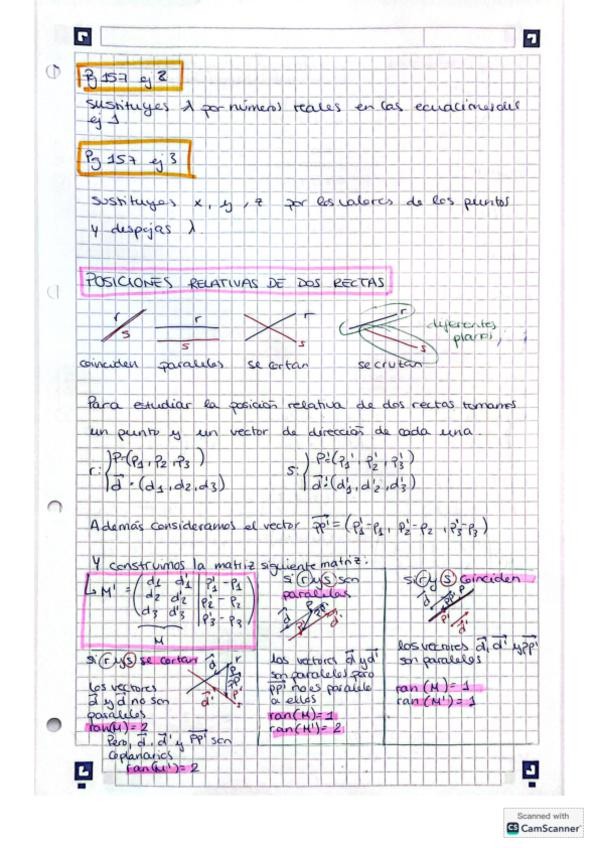 Pg 157 ej 2
sustituyes λ por números reales en las ecuaciones del
ej 1
Pg 157 ej 3
sustituyes x, y, z por los valores de los puntos
y despejas λ.
POSICIONES RELATIVAS DE DOS RECTAS
r s
r s
r s
r s
diferentes
planos
coinciden paralelas se cortan se cruzan
Para estudiar la posición relativa de dos rectas tomamos
un punto y un vector de dirección de cada una.
r: { P=(p₁, p₂, p₃)
d⃗ = (d₁, d₂, d₃)
s: { P'=(p'₁, p'₂, p'₃)
d⃗' = (d'₁, d'₂, d'₃)
Además consideramos el vector PP'⃗ = (p'₁-p₁, p'₂-p₂, p'₃-p₃)
Y construimos la matriz siguiente matriz:
M' = ( d₁ d'₁ | p'₁-p₁
d₂ d'₂ | p'₂-p₂
d₃ d'₃ | p'₃-p₃ )
M
si r y s se cortan
los vectores
d⃗ y d⃗' no son
paralelos
ran(M)=2
Pero, d⃗, d⃗' y PP'⃗ son
coplanarios
ran(M')=2
si r y s son
paralelas
los vectores d⃗ y d⃗'
son paralelos pero
PP'⃗ no es paralelo
a ellos
ran(M)=1
ran(M')=2
si r y s coinciden
los vectores d⃗, d⃗' y PP'⃗
son paralelos
ran(M)=1
ran(M')=1
Scanned with
CS CamScanner